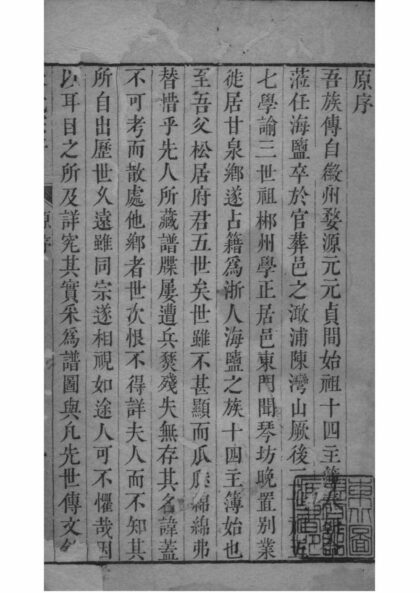 原序
吾族傳自徽州婺源元元貞間始祖十四主簿
蒞任海鹽卒於官葬邑之澉浦陳灣山厥後二世
七學諭三世祖郴州學正居邑東門聞琴坊晚置別業
徙居甘泉鄉遂占籍爲浙人海鹽之族十四主簿始也
至吾父松居府君五世矣世雖不甚顯而瓜瓞綿綿弗
替惜乎先人所藏譜牒屢遭兵燹殘失無存其名諱蓋
不可考而散處他鄉者世次恨不得詳夫人而不知其
所自出歷世久遠雖同宗遂相視如途人可不懼哉因
以耳目之所及詳究其實采爲譜圖與凡先世傳文
原序